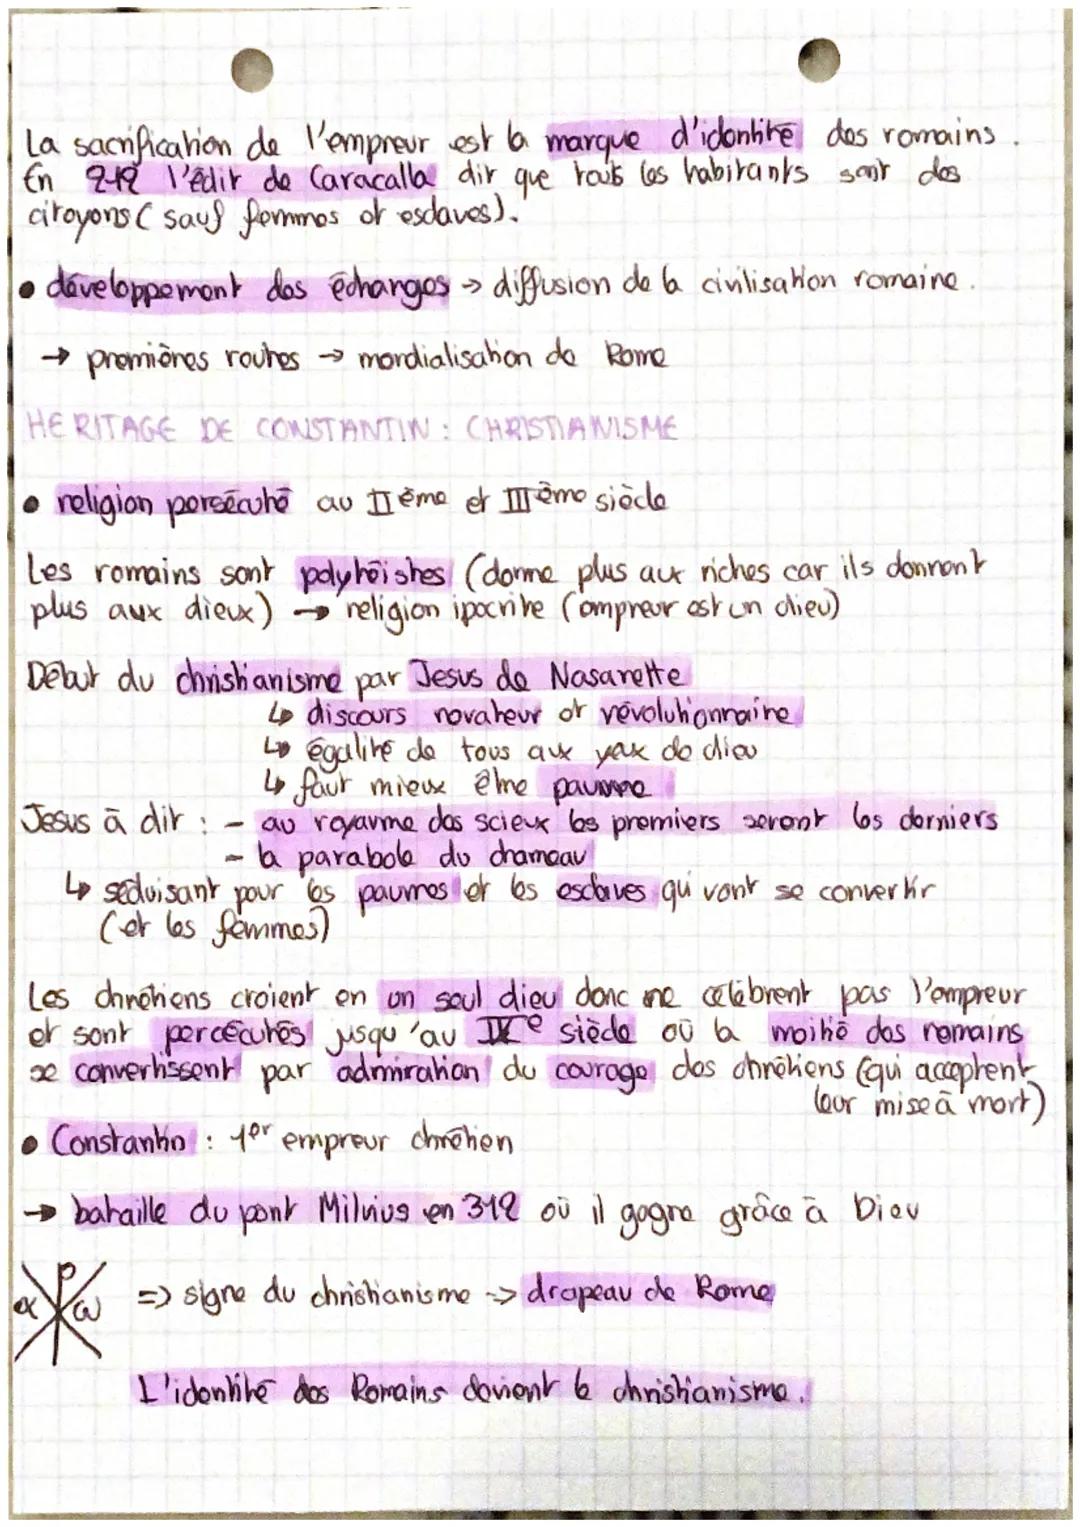 La sacrification de l'empreur est la marque d'identité des romains.
En 212 l'édit de Caracalla dit que touts les habitants sont des
citoyens (sauf femmes et esclaves).
• développement des échanges → diffusion de la civilisation romaine.
→ premières routes → mondialisation de Rome
HERITAGE DE CONSTANTIN : CHRISTIANISME
• religion persécuté au IIème et IIIème siècle
Les romains sont polythéistes (donne plus aux riches car ils donnent
plus aux dieux) → religion ipocrite (empreur est un dieu)
Début du christianisme par Jesus de Nasarette
↳ discours novateur et révolutionnaire
↳ égalité de tous aux yeux de dieu
↳ faut mieux être pauvre
Jesus à dit : - au royaume des scieux les premiers seront les derniers
- la parabole du chameau
↳ séduisant pour les pauvres et les esclaves qui vont se convertir
(et les femmes)
Les chrétiens croient en un seul dieu donc ne célèbrent pas l'empreur
et sont percécutés jusqu'au IVe siècle où la moitié des romains
se convertissent par admiration du courage des chrétiens (qui acceptent
leur mise à mort)
• Constantin : 1er empreur chrétien
→ bataille du pont Milvius en 312 où il gagne grâce à Dieu
α P ω => signe du christianisme -> drapeau de Rome
L'identité des Romains devient le christianisme.